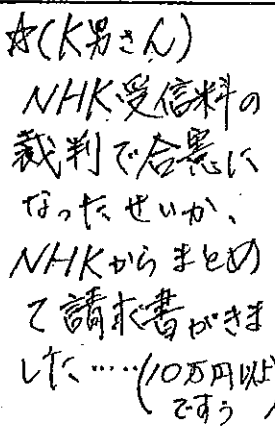 ☆(K男さん)
NHK受信料の
裁判で合憲に
なったせいか、
NHKからまとめ
て請求書がきま
した……(10万円以上
ですぅ)